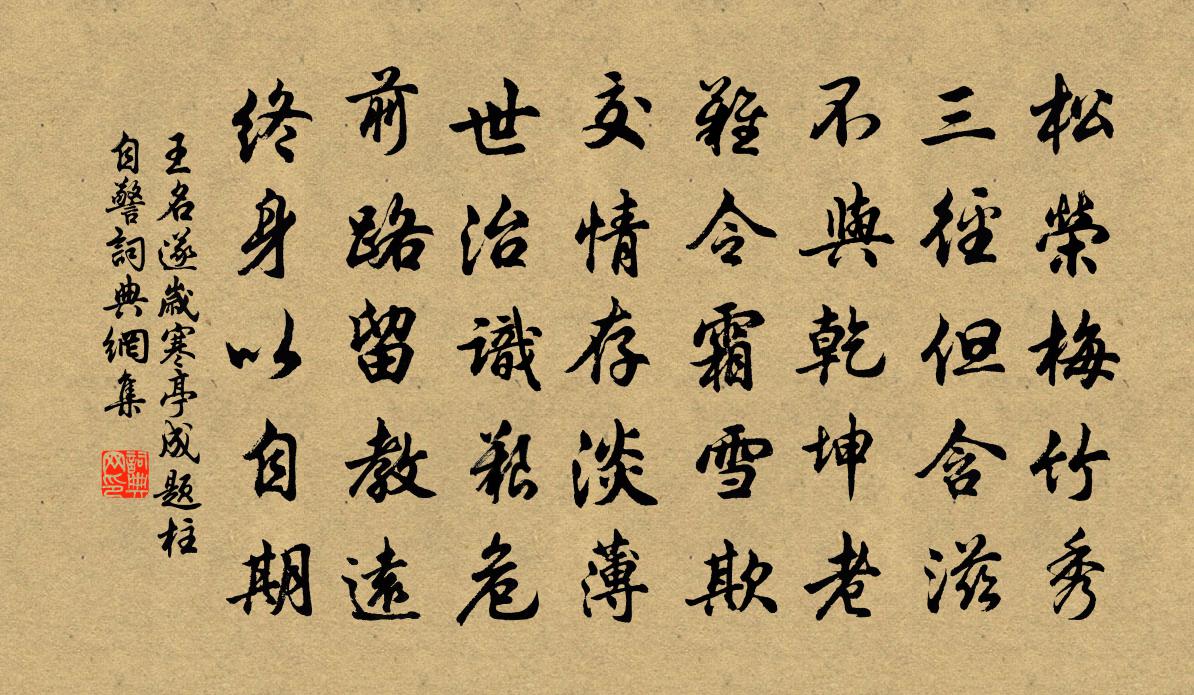 松榮梅竹秀
三徑但含滋
不與乾坤老
難令霜雪欺
交情存淡薄
世治識艱危
前路留教遠
終身以自期
王名遂歲寒亭成題柱
自警詞典網集
詞典网印